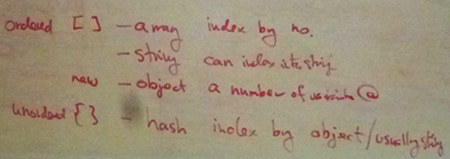 ordered [ ] - array index by no.
- string can index into string
new - object a number of variables @
unordered { } - hash index by object/usually string